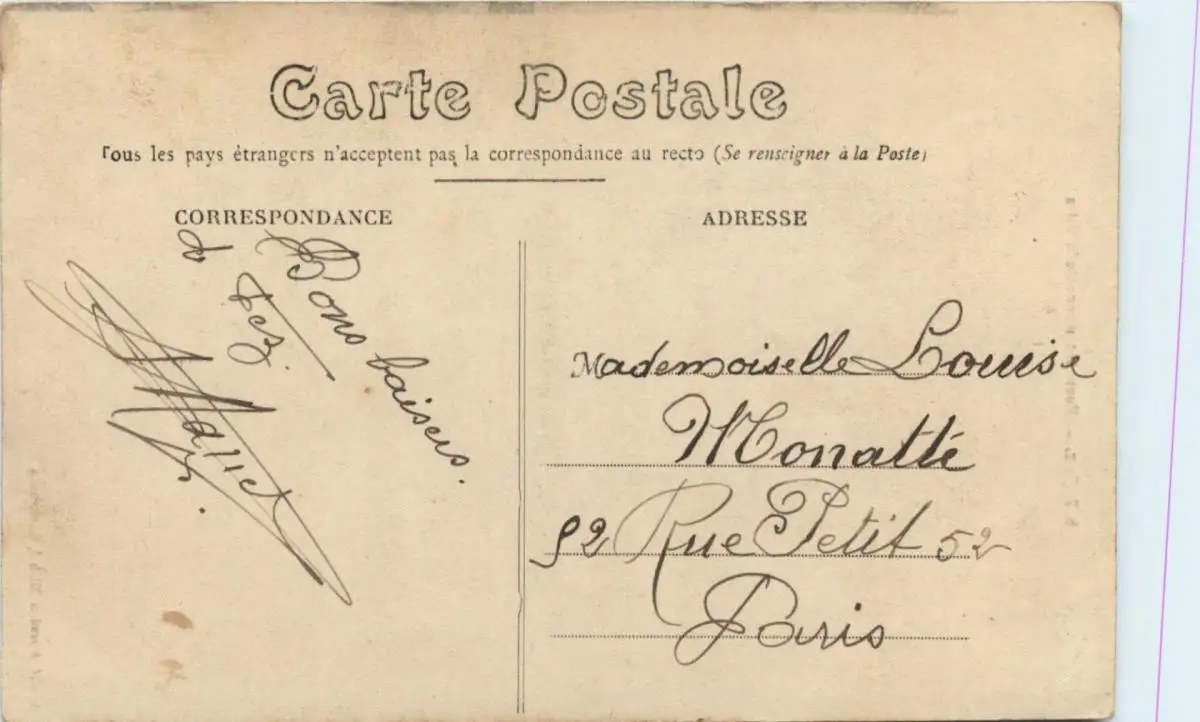 Carte Postale
Tous les pays étrangers n'acceptent pas la correspondance au recto (Se renseigner à la Poste)
CORRESPONDANCE
Bons baisers.
de
Fez
ADRESSE
Mademoiselle Louise
Monatté
52 Rue Petit 52
Paris